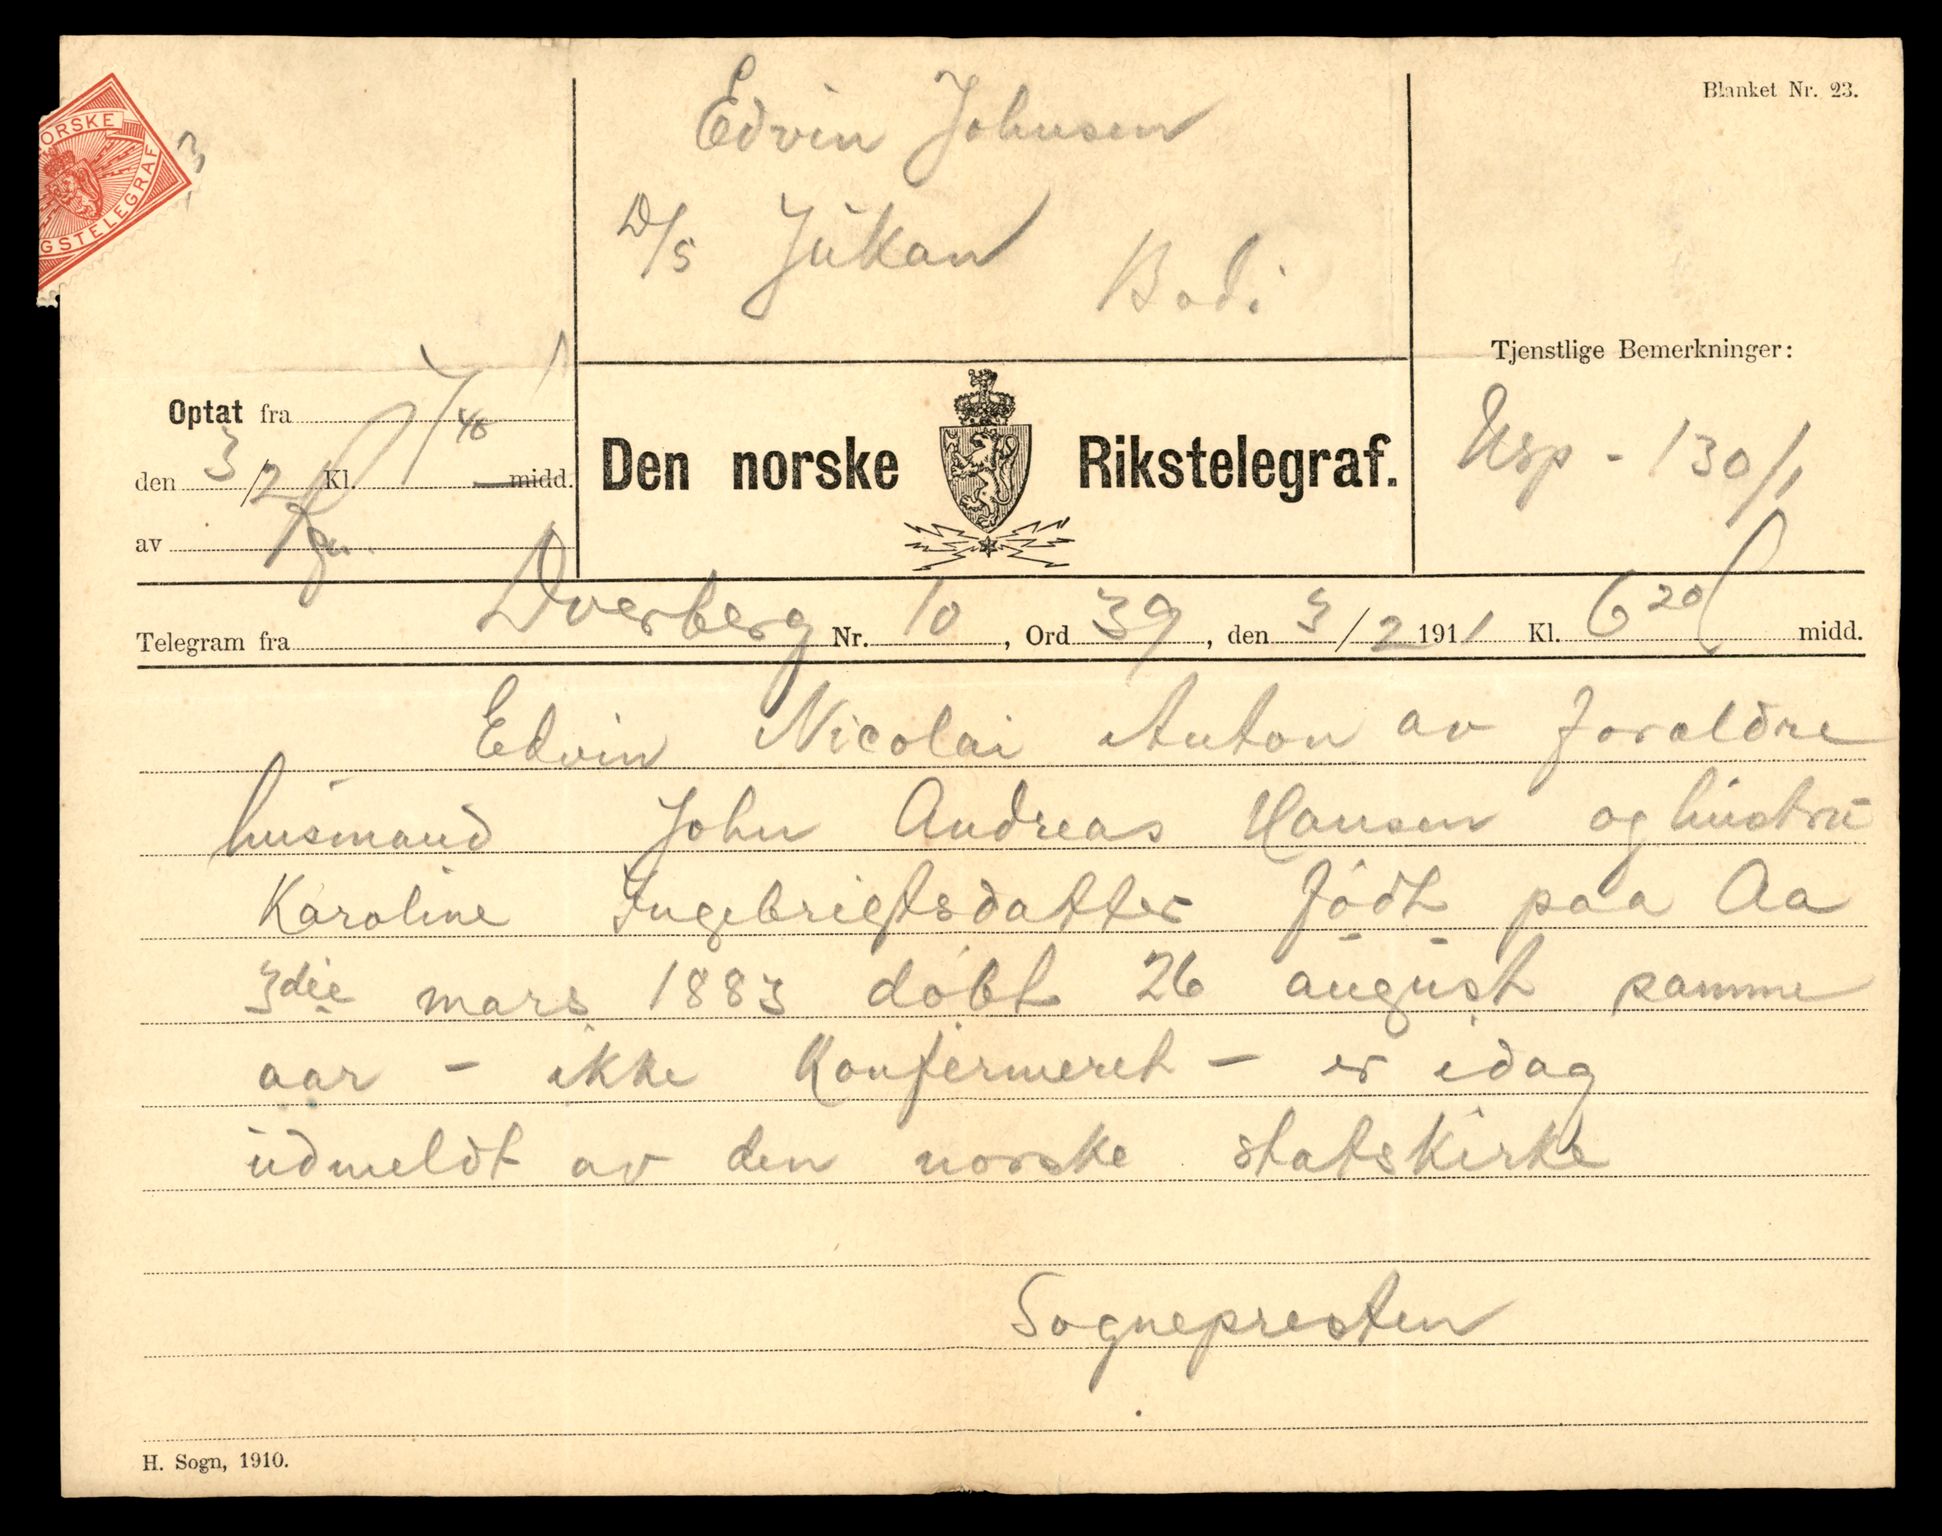 Blanket Nr. 23.
Edvin Johnsen
D/S Jükan
Bodö
ORSKE
GSTELEGRAF
Tjenstlige Bemerkninger:
Optat fra
den 3/2 Kl. 7 40 midd.
av
Den norske Rikstelegraf.
Usp - 130/1
Telegram fra Dverberg Nr. 10, Ord 39, den 3/2 1911 Kl. 6 20 midd.
Edvin Nicolai Anton av foraldre
hüsmand John Andreas Hansen og hüstrü
Karoline Ingebrigtsdatter född paa Aa
3die mars 1883 döbt 26 augüst samme
aar - ikke Konfermeret - er idag
üdmeldt av den norske statskirke
Sognepresten
H. Sogn, 1910.